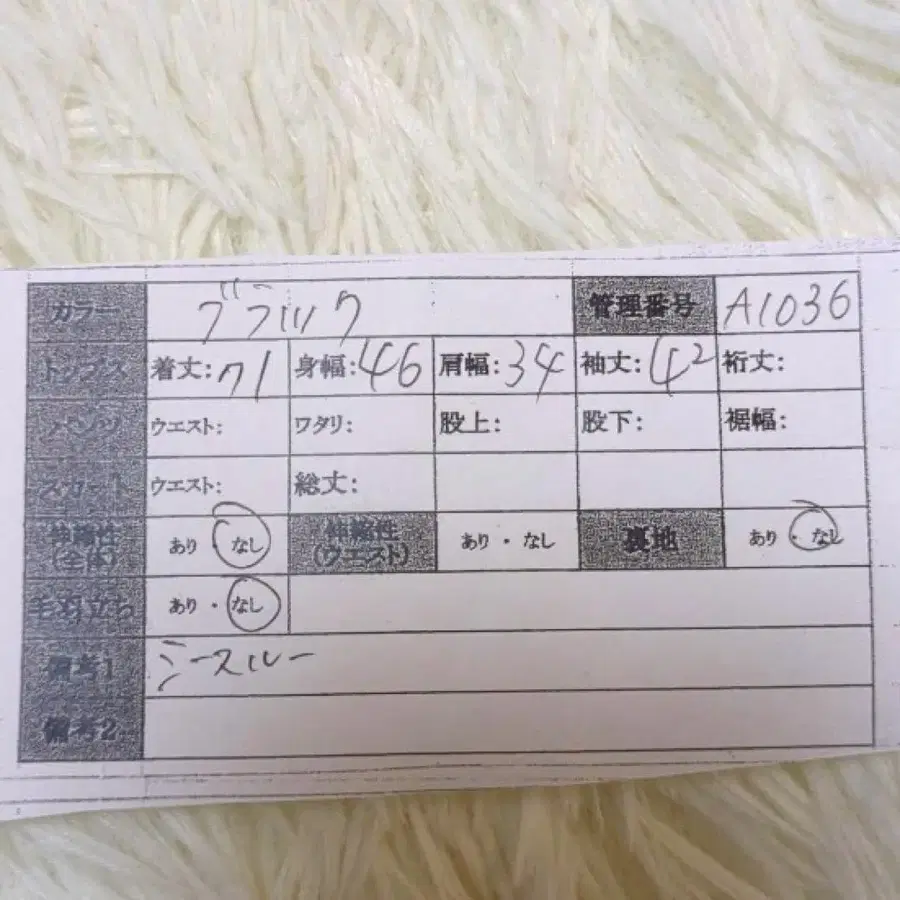 カラー ブラック 管理番号 A1036
トップス 着丈:71 身幅:46 肩幅:34 袖丈:42 裄丈:
パンツ ウエスト: ワタリ: 股上: 股下: 裾幅:
スカート ウエスト: 総丈:
伸縮性(全体) あり・なし 伸縮性(ウエスト) あり・なし 裏地 あり・なし
毛羽立ち あり・なし
備考1 シースルー
備考2